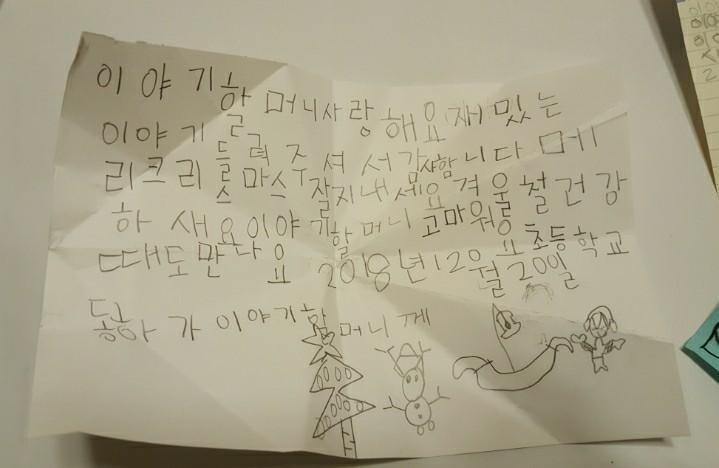 이야기할머니사랑해요재밌는
이야기 들려주셔서감사합니다메
리크리스마스잘지내세요겨울철건강
하새요이야기할머니고마워요초등학교
때도만나요 2018년12월20일
가이야기할머니께